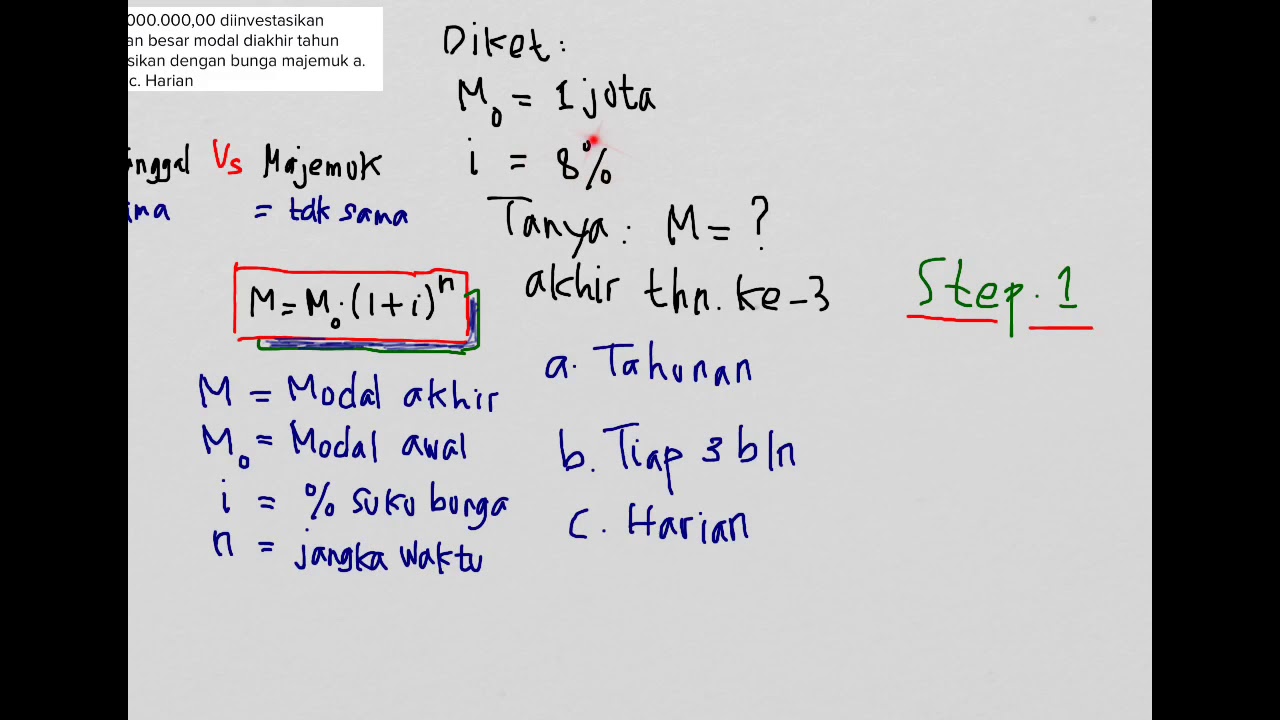 000.000,00 diinvestasikan
an besar modal diakhir tahun
sikan dengan bunga majemuk a.
c. Harian
nggal Vs Majemuk
ama = tdk sama
M = M₀ . (1 + i)ⁿ
M = Modal akhir
M₀ = Modal awal
i = % suku bunga
n = jangka waktu
Diket :
M₀ = 1 juta
i = 8%
Tanya : M = ?
akhir thn. ke-3
a. Tahunan
b. Tiap 3 bln
c. Harian
Step. 1